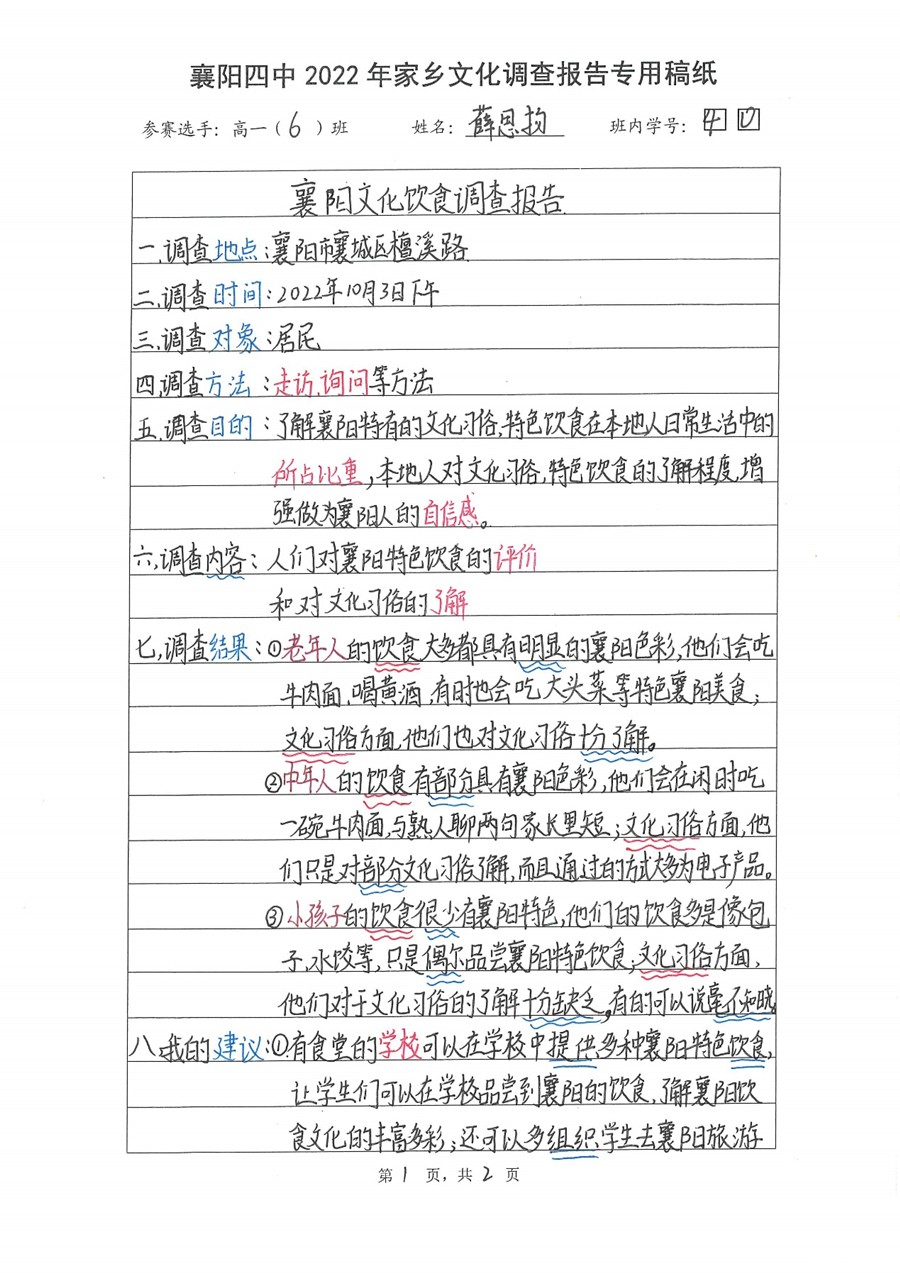 襄阳四中 2022 年家乡文化调查报告专用稿纸
参赛选手：高一（6）班 姓名：薛恩均 班内学号：40
襄阳文化饮食调查报告
一.调查地点：襄阳市襄城区檀溪路
二.调查时间：2022年10月3日下午
三.调查对象：居民
四.调查方法：走访、询问等方法
五.调查目的：了解襄阳特有的文化习俗,特色饮食在本地人日常生活中的
所占比重,本地人对文化习俗,特色饮食的了解程度,增
强做为襄阳人的自信感。
六.调查内容：人们对襄阳特色饮食的评价
和对文化习俗的了解
七.调查结果：①老年人的饮食大多都具有明显的襄阳色彩,他们会吃
牛肉面,喝黄酒,有时也会吃大头菜等特色襄阳美食；
文化习俗方面,他们也对文化习俗十分了解。
②中年人的饮食有部分具有襄阳色彩,他们会在闲时吃
一碗牛肉面,与熟人聊两句家长里短；文化习俗方面,他
们只是对部分文化习俗了解,而且通过的方式大多为电子产品。
③小孩子的饮食很少有襄阳特色,他们的饮食多是像包
子,水饺等,只是偶尔品尝襄阳特色饮食；文化习俗方面,
他们对于文化习俗的了解十分缺乏,有的可以说毫不知晓。
八.我的建议：①.有食堂的学校可以在学校中提供多种襄阳特色饮食,
让学生们可以在学校品尝到襄阳的饮食,了解襄阳饮
食文化的丰富多彩；还可以多组织学生去襄阳旅游
第1页，共2页